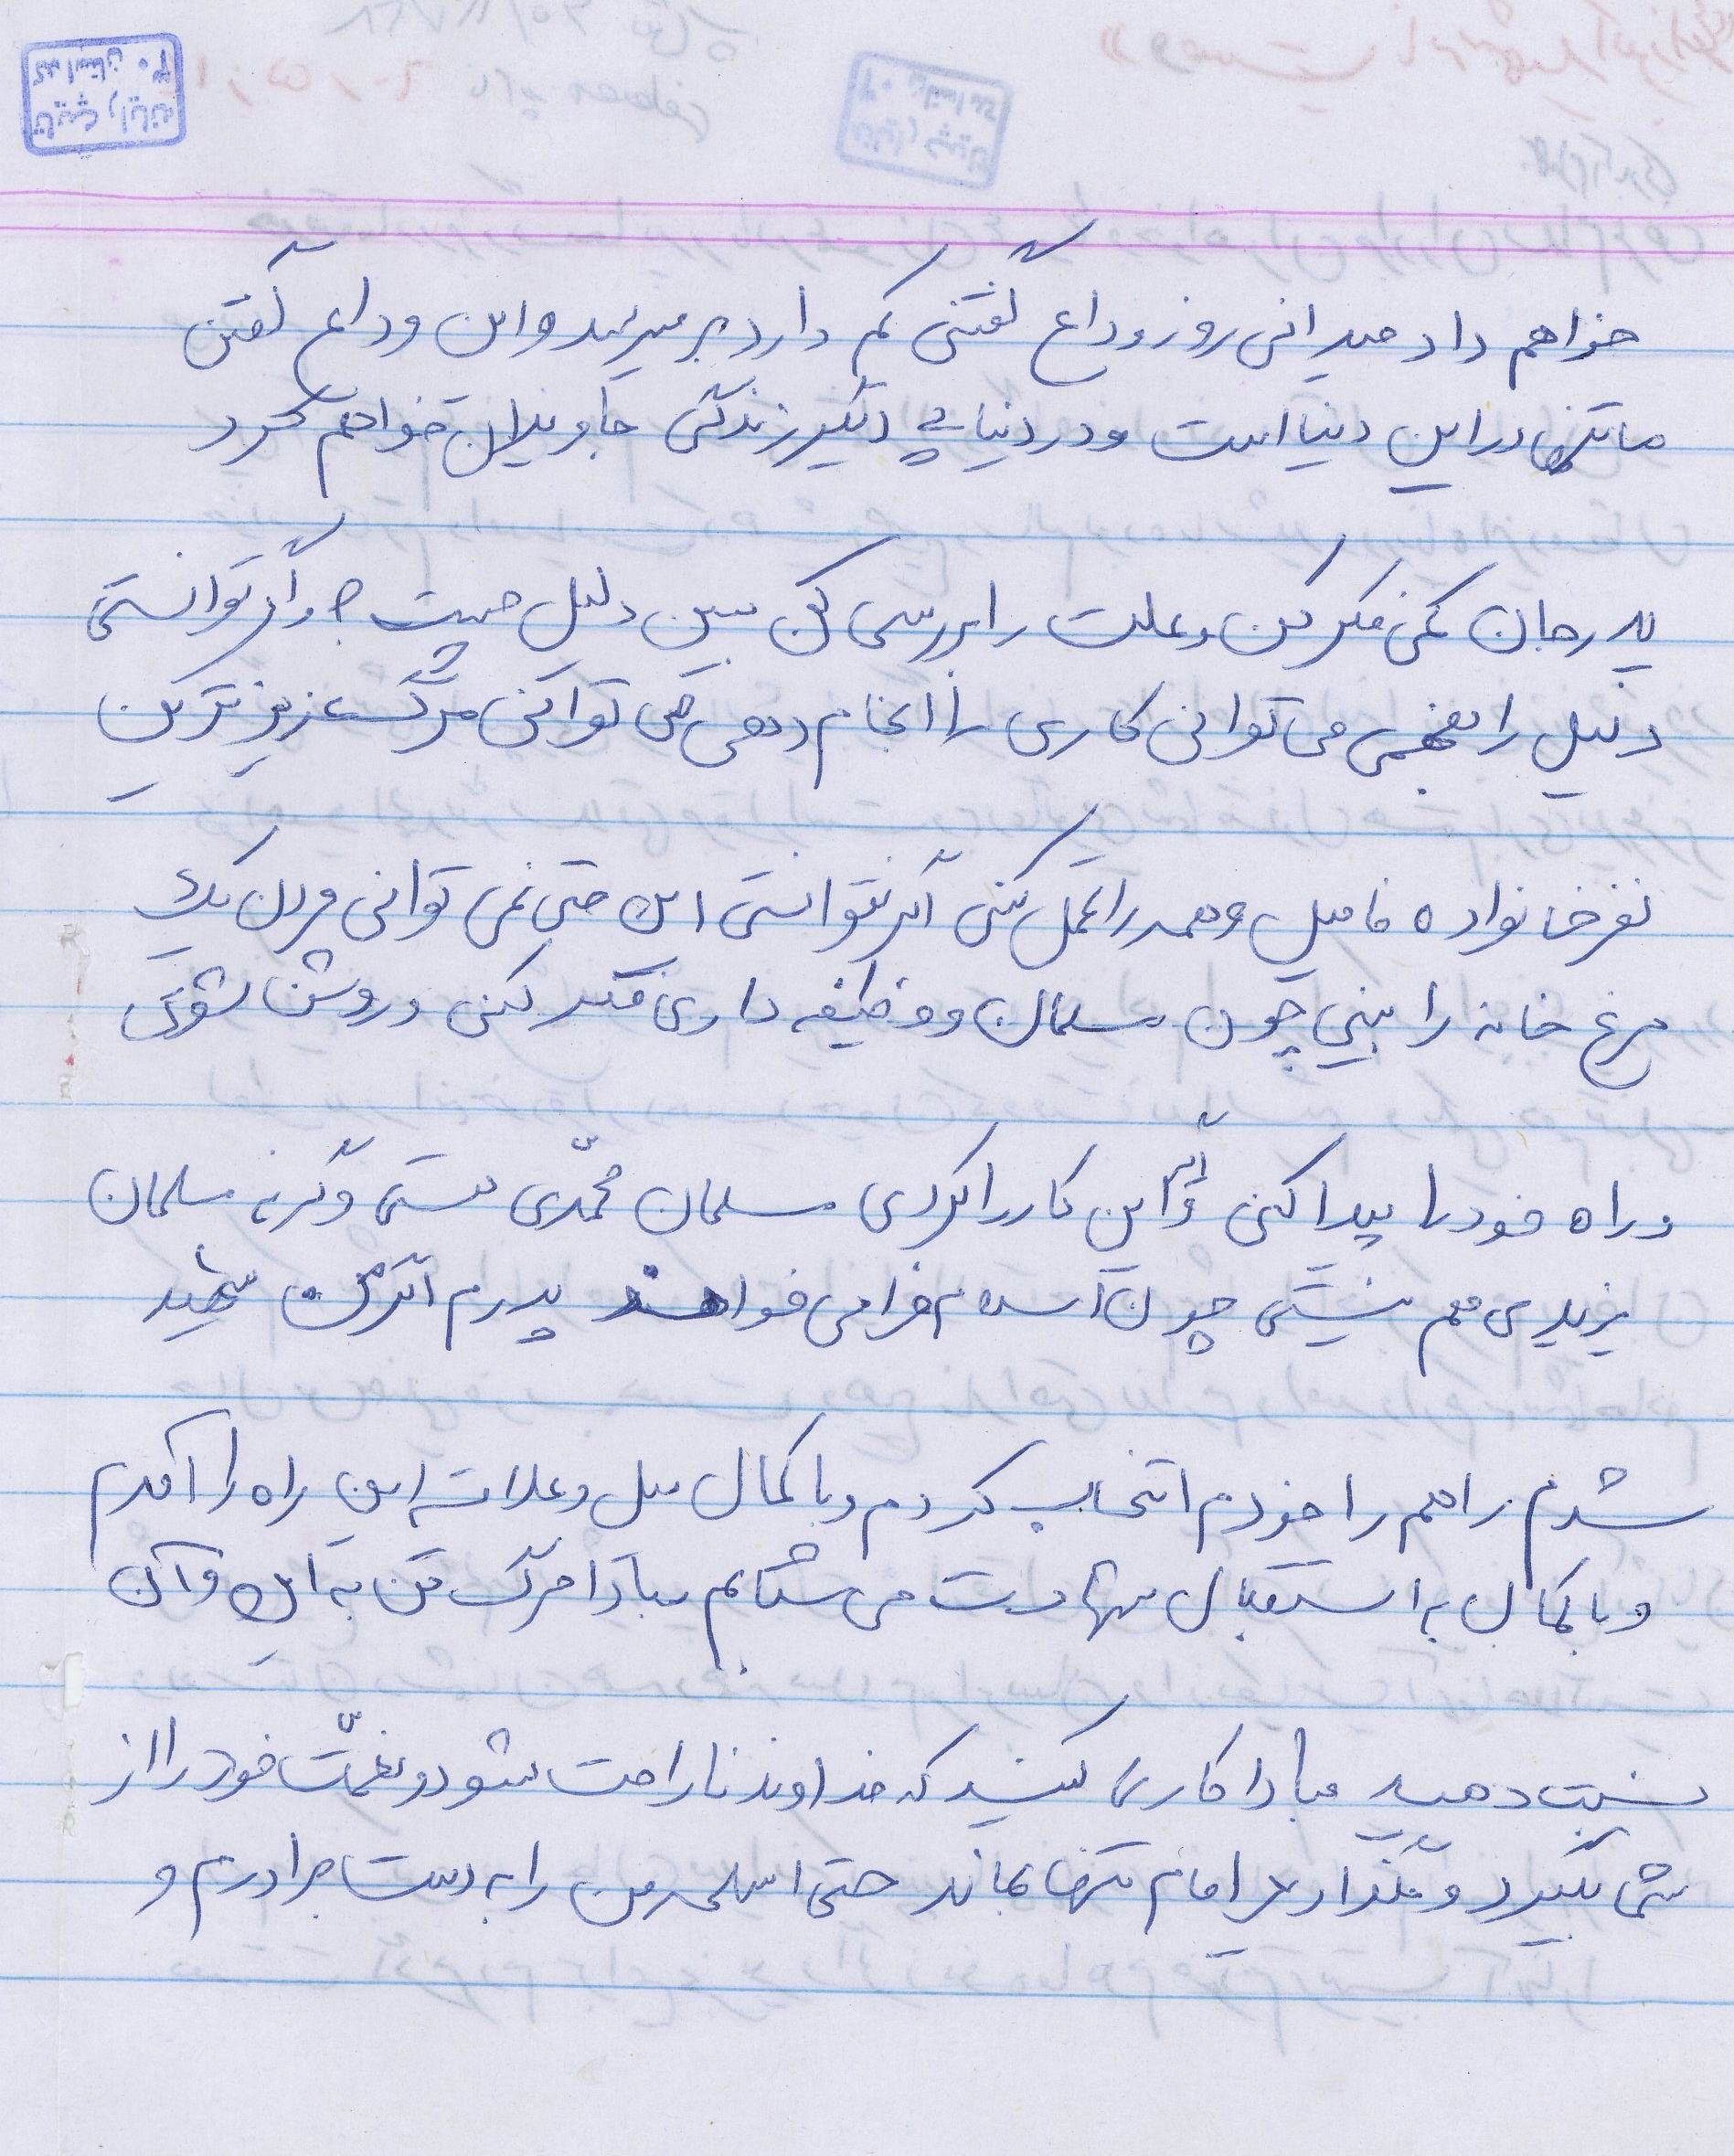 خواهم داد میدانی روز وداع گفتنی کم دارد بر میرسد و این وداع گفتن
ما تنها در این دنیا است و در دنیایی دیگر زندگی جاویدان خواهم کرد
پدر جان کمی فکر کن و علت را بررسی کن ببین دلیل چیست؟ و اگر توانستی
دلیل را بفهمی می توانی کاری را انجام دهی می توانی مرگ عزیزترین
نفر خانواده فامیل و همه را تحمل کنی اگر نتوانستی این حتی نمی توانی مردن یک
مرغ خانه را ببینی چون مسلمان و وظیفه داری فکر کنی و روشن شوی
و راه خود را پیدا کنی و اگر این کار را کردی مسلمان محمّدی هستی وگرنه مسلمان
یزیدی هم نیستی چون اسلام فرا می خواند پدرم اگر من شهید
شدم راهم را خودم انتخاب کردم و با کمال میل و علاقه این راه را آمدم
و با کمال به استقبال شهادت می شتابم مبادا مرگ من به این و آن
نسبت دهید مبادا کاری کنید که خداوند ناراحت شود و نعمّت خود را از
شما بگیرد و نگذارید امام تنها بماند حتی اسلحه من را به دست برادرم و